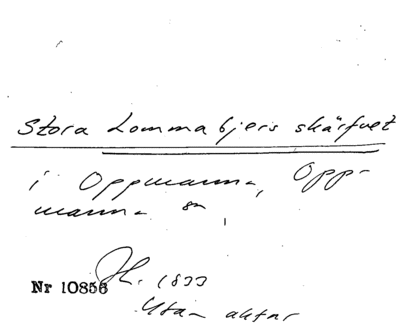 Stora Lommabjers skärfvet
i Oppmanna, Opp-
manna sn,
Nr 10856
1833
Utan aktnr